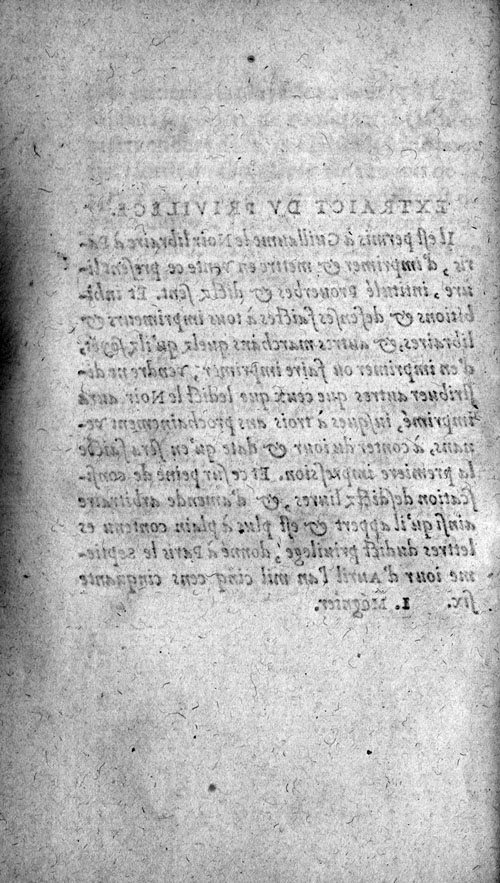 EXTRAICT DV PRIVILEGE.
Il eſt permis à Guillaume le Noir libraire à Pa-
ris, d'imprimer & mettre en vente ce preſent li-
ure, intitulé Prouerbes & dictz ſent. Et inhi-
bitions & defenſes faictes à tous imprimeurs &
libraires, & autres marchans quelz qu'ilz ſoyẽt,
d'en imprimer ou faire imprimer, vendre ne di-
ſtribuer autres que ceux que ledict le Noir aura
imprimé, iuſques à trois ans prochainement ve-
nans, à conter du iour & date qu'en ſera faicte
la premiere impreſsion. Et ce ſur peine de confiſ-
cation deſdictz liures, & d'amende arbitraire
ainſi qu'il appert & eſt plus à plain contenu es
lettres dudict priuilege, donné à Paris le ſeptie-
me iour d'Auril l'an mil cinq cens cinquante
ſix. I. Meſnier.